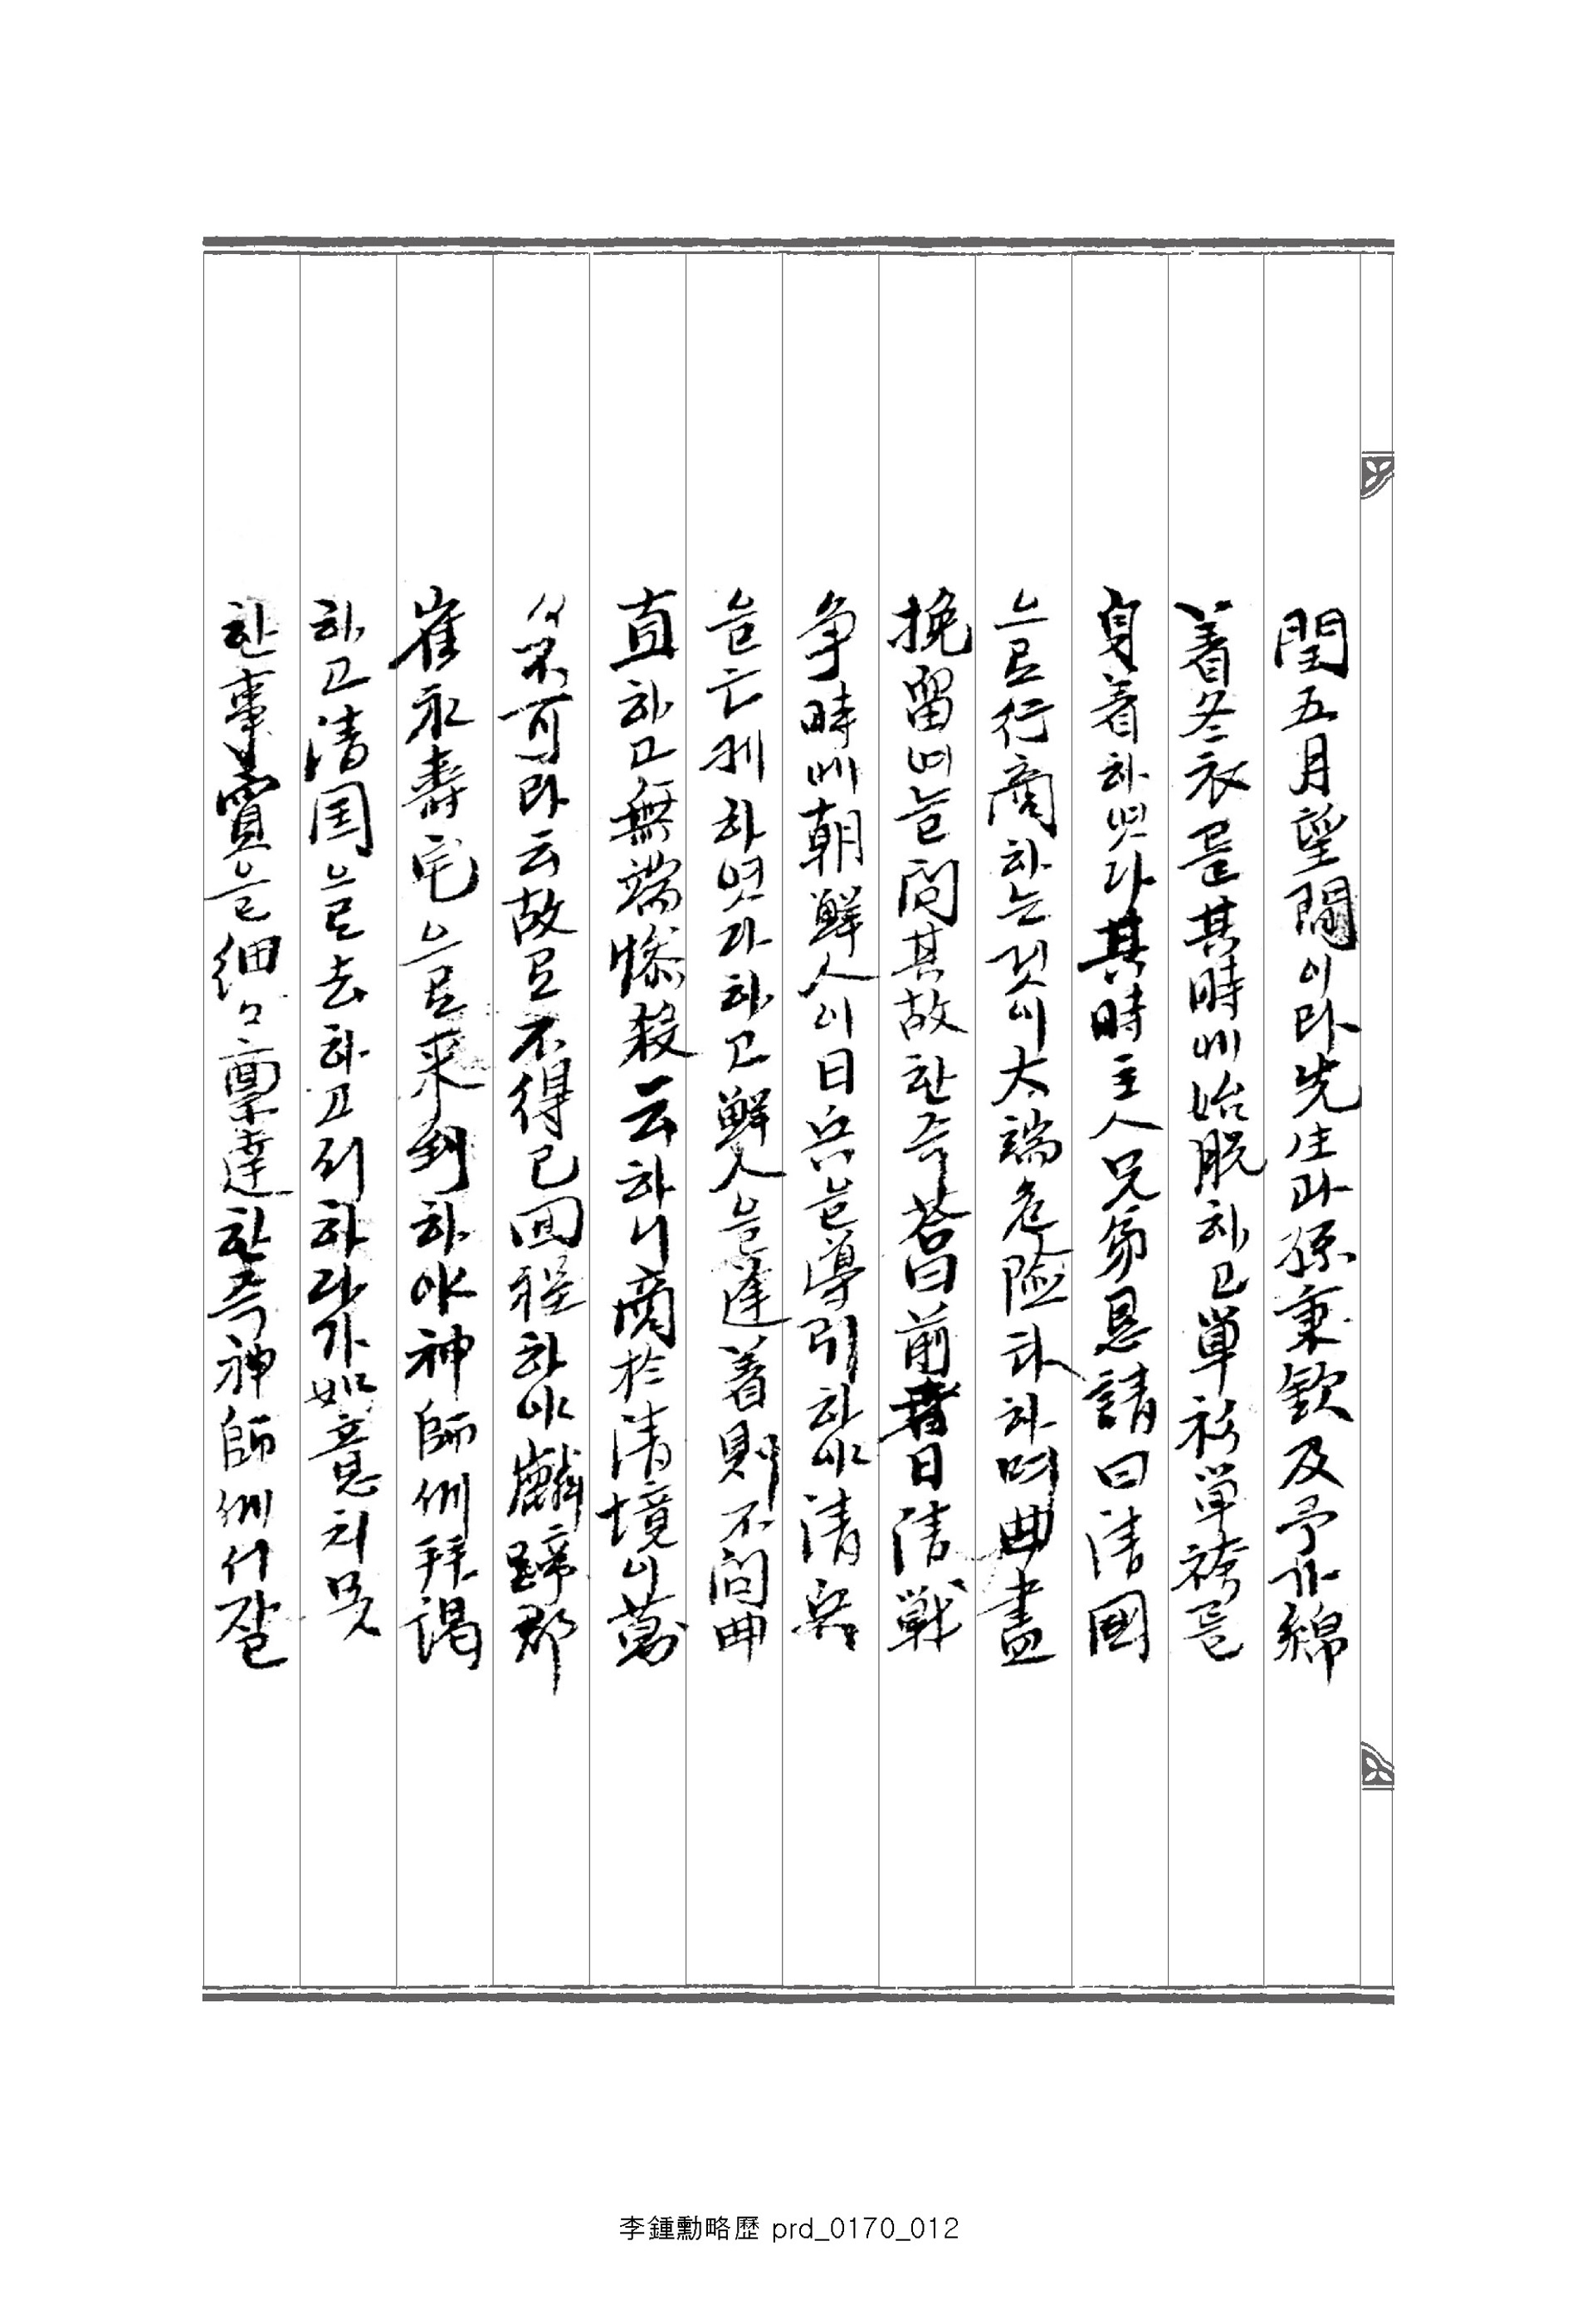 閏五月望間이라先生과孫秉欽及予가綿
着冬衣를其時에始脫하고單衫單袴를
身着하엿다其時主人兄弟恳請曰清國
으로行商하는것이大端危險하다하며曲盡
挽留에늘問其故한즉答曰前者日清戰
争時에朝鮮人이日兵을導引하야清兵
을亡케하엿다하고鮮人을逢着則不問曲
直하고無端慘殺云하니商於清境이萬
萬不可라云故로不得已回程하야麟蹄郡
崔永壽宅으로来到하야神師에拜謁
하고清国으로去하고저하다가如意치못
한事實을細々稟達한즉神師에서잘